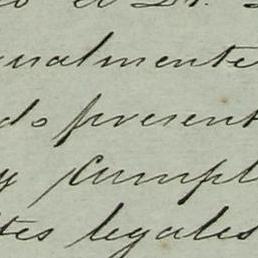 o el Dr.
ualmente
do present
y cumpl
tes legales